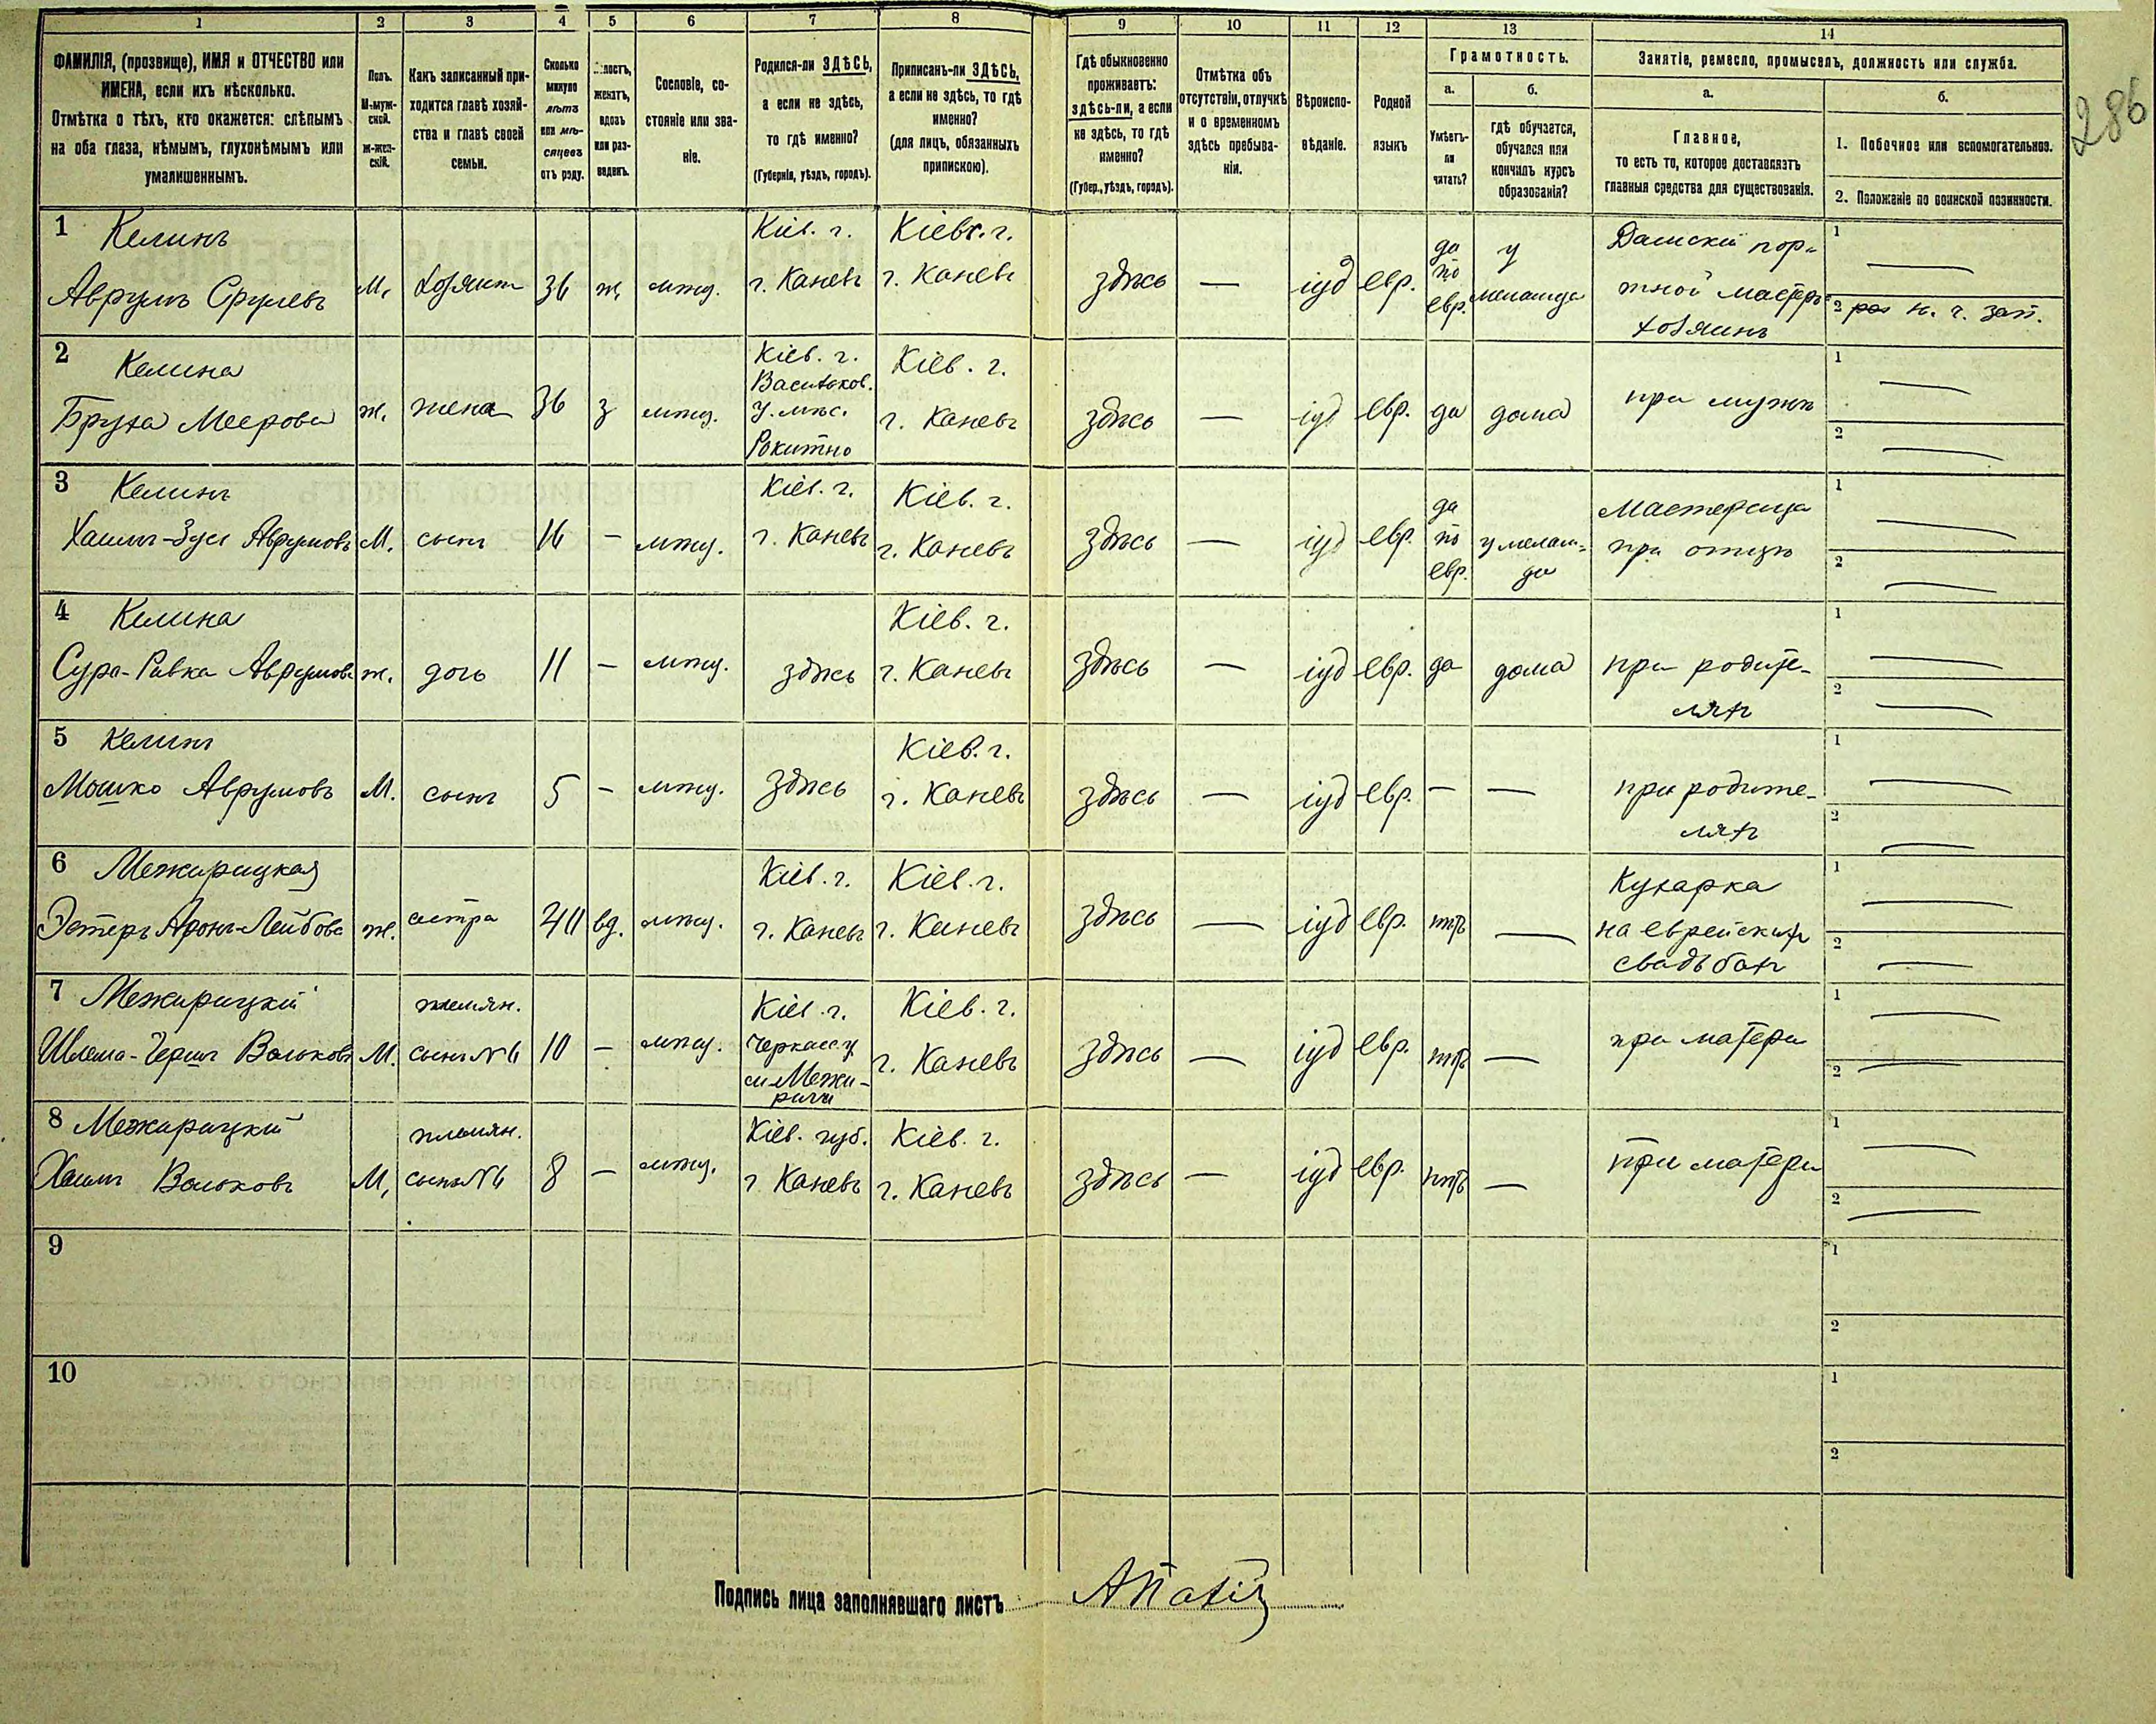 1 2 3 4 5 6 7 8 9 10 11 12 13 14
ФАМИЛІЯ, (прозвище), ИМЯ и ОТЧЕСТВО или
ИМЕНА, если ихъ нѣсколько.
Отмѣтка о тѣхъ, кто окажется: слѣпымъ
на оба глаза, нѣмымъ, глухонѣмымъ или
умалишеннымъ.
Полъ.
М-муж-
ской.
ж-жен-
скій.
Какъ записанный при-
ходится главѣ хозяй-
ства и главѣ своей
семьи.
Сколько
минуло
лѣтъ
или мѣ-
сяцевъ
отъ роду.
женатъ,
вдовъ
или раз-
веденъ.
Сословіе, со-
стояніе или зва-
ніе.
Родился-ли ЗДѢСЬ,
а если не здѣсь,
то гдѣ именно?
(Губернія, уѣздъ, городъ).
Приписанъ-ли ЗДѢСЬ,
а если не здѣсь, то гдѣ
именно?
(для лицъ, обязанныхъ
припискою).
Гдѣ обыкновенно
проживаетъ:
здѣсь-ли, а если
не здѣсь, то гдѣ
именно?
(Губер., уѣздъ, городъ).
Отмѣтка объ
отсутствіи, отлучкѣ
и о временномъ
здѣсь пребыва-
ніи.
Вѣроиспо-
вѣданіе.
Родной
языкъ
Грамотность.
а.
Умѣетъ-
ли
читать?
б.
гдѣ обучается,
обучался или
кончилъ курсъ
образованія?
Занятіе, ремесло, промыселъ, должность или служба.
а.
Главное,
то есть то, которое доставляетъ
главныя средства для существованія.
б.
1. Побочное или вспомогательное.
2. Положеніе по воинской повинности.
286
1 Келинъ
Аврумъ Срулевъ
М.
хозяинъ
36
ж.
мѣщ.
Кіев. г.
г. Каневъ
Кіевс. г.
г. Каневъ
здѣсь
—
іуд
евр.
да
по
евр.
у
меламда
Дамскій пор-
тной мастеръ
хозяинъ
1 —
2 н. ч. зап.
2 Келина
Бруха Меерова
ж.
жена
36
з
мѣщ.
Кіев. г.
Васильков.
у. мѣс.
Рокитно
Кіев. г.
г. Каневъ
здѣсь
—
іуд
евр.
да
дома
при мужѣ
1 —
2 —
3 Келинъ
Хаимъ-Зусь Аврумовъ
М.
сынъ
16
—
мѣщ.
Кіев. г.
г. Каневъ
Кіев. г.
г. Каневъ
здѣсь
—
іуд
евр.
да
по
евр.
у мелам-
да
Мастерица
при отцѣ
1 —
2 —
4 Келина
Сура-Ривка Аврумова
ж.
дочь
11
—
мѣщ.
здѣсь
Кіев. г.
г. Каневъ
здѣсь
—
іуд
евр.
да
дома
при родите-
ляхъ
1 —
2 —
5 Келинъ
Мошко Аврумовъ
М.
сынъ
5
—
мѣщ.
здѣсь
Кіев. г.
г. Каневъ
здѣсь
—
іуд
евр.
—
—
при родите-
ляхъ
1 —
2 —
6 Межирицкая
Эстеръ Аронъ-Лейбова
ж.
сестра
вд.
мѣщ.
Кіев. г.
г. Каневъ
Кіев. г.
г. Каневъ
здѣсь
—
іуд
евр.
нѣтъ
—
Кухарка
на еврейскихъ
свадьбахъ
1 —
2 —
7 Межирицкій
Шлема-Гершъ Вольковъ
М.
племян.
сынъ №6
10
—
мѣщ.
Кіев. г.
Черкасс. у.
м. Межи-
ричи
Кіев. г.
г. Каневъ
здѣсь
—
іуд
евр.
нѣтъ
—
при матери
1 —
2 —
8 Межирицкій
Хаимъ Вольковъ
М.
племян.
сынъ №6
8
—
мѣщ.
Кіев. губ.
г. Каневъ
Кіев. г.
г. Каневъ
здѣсь
—
іуд
евр.
нѣтъ
—
при матери
1 —
2 —
9
1
2
10
1
2
Подпись лица заполнявшаго листъ